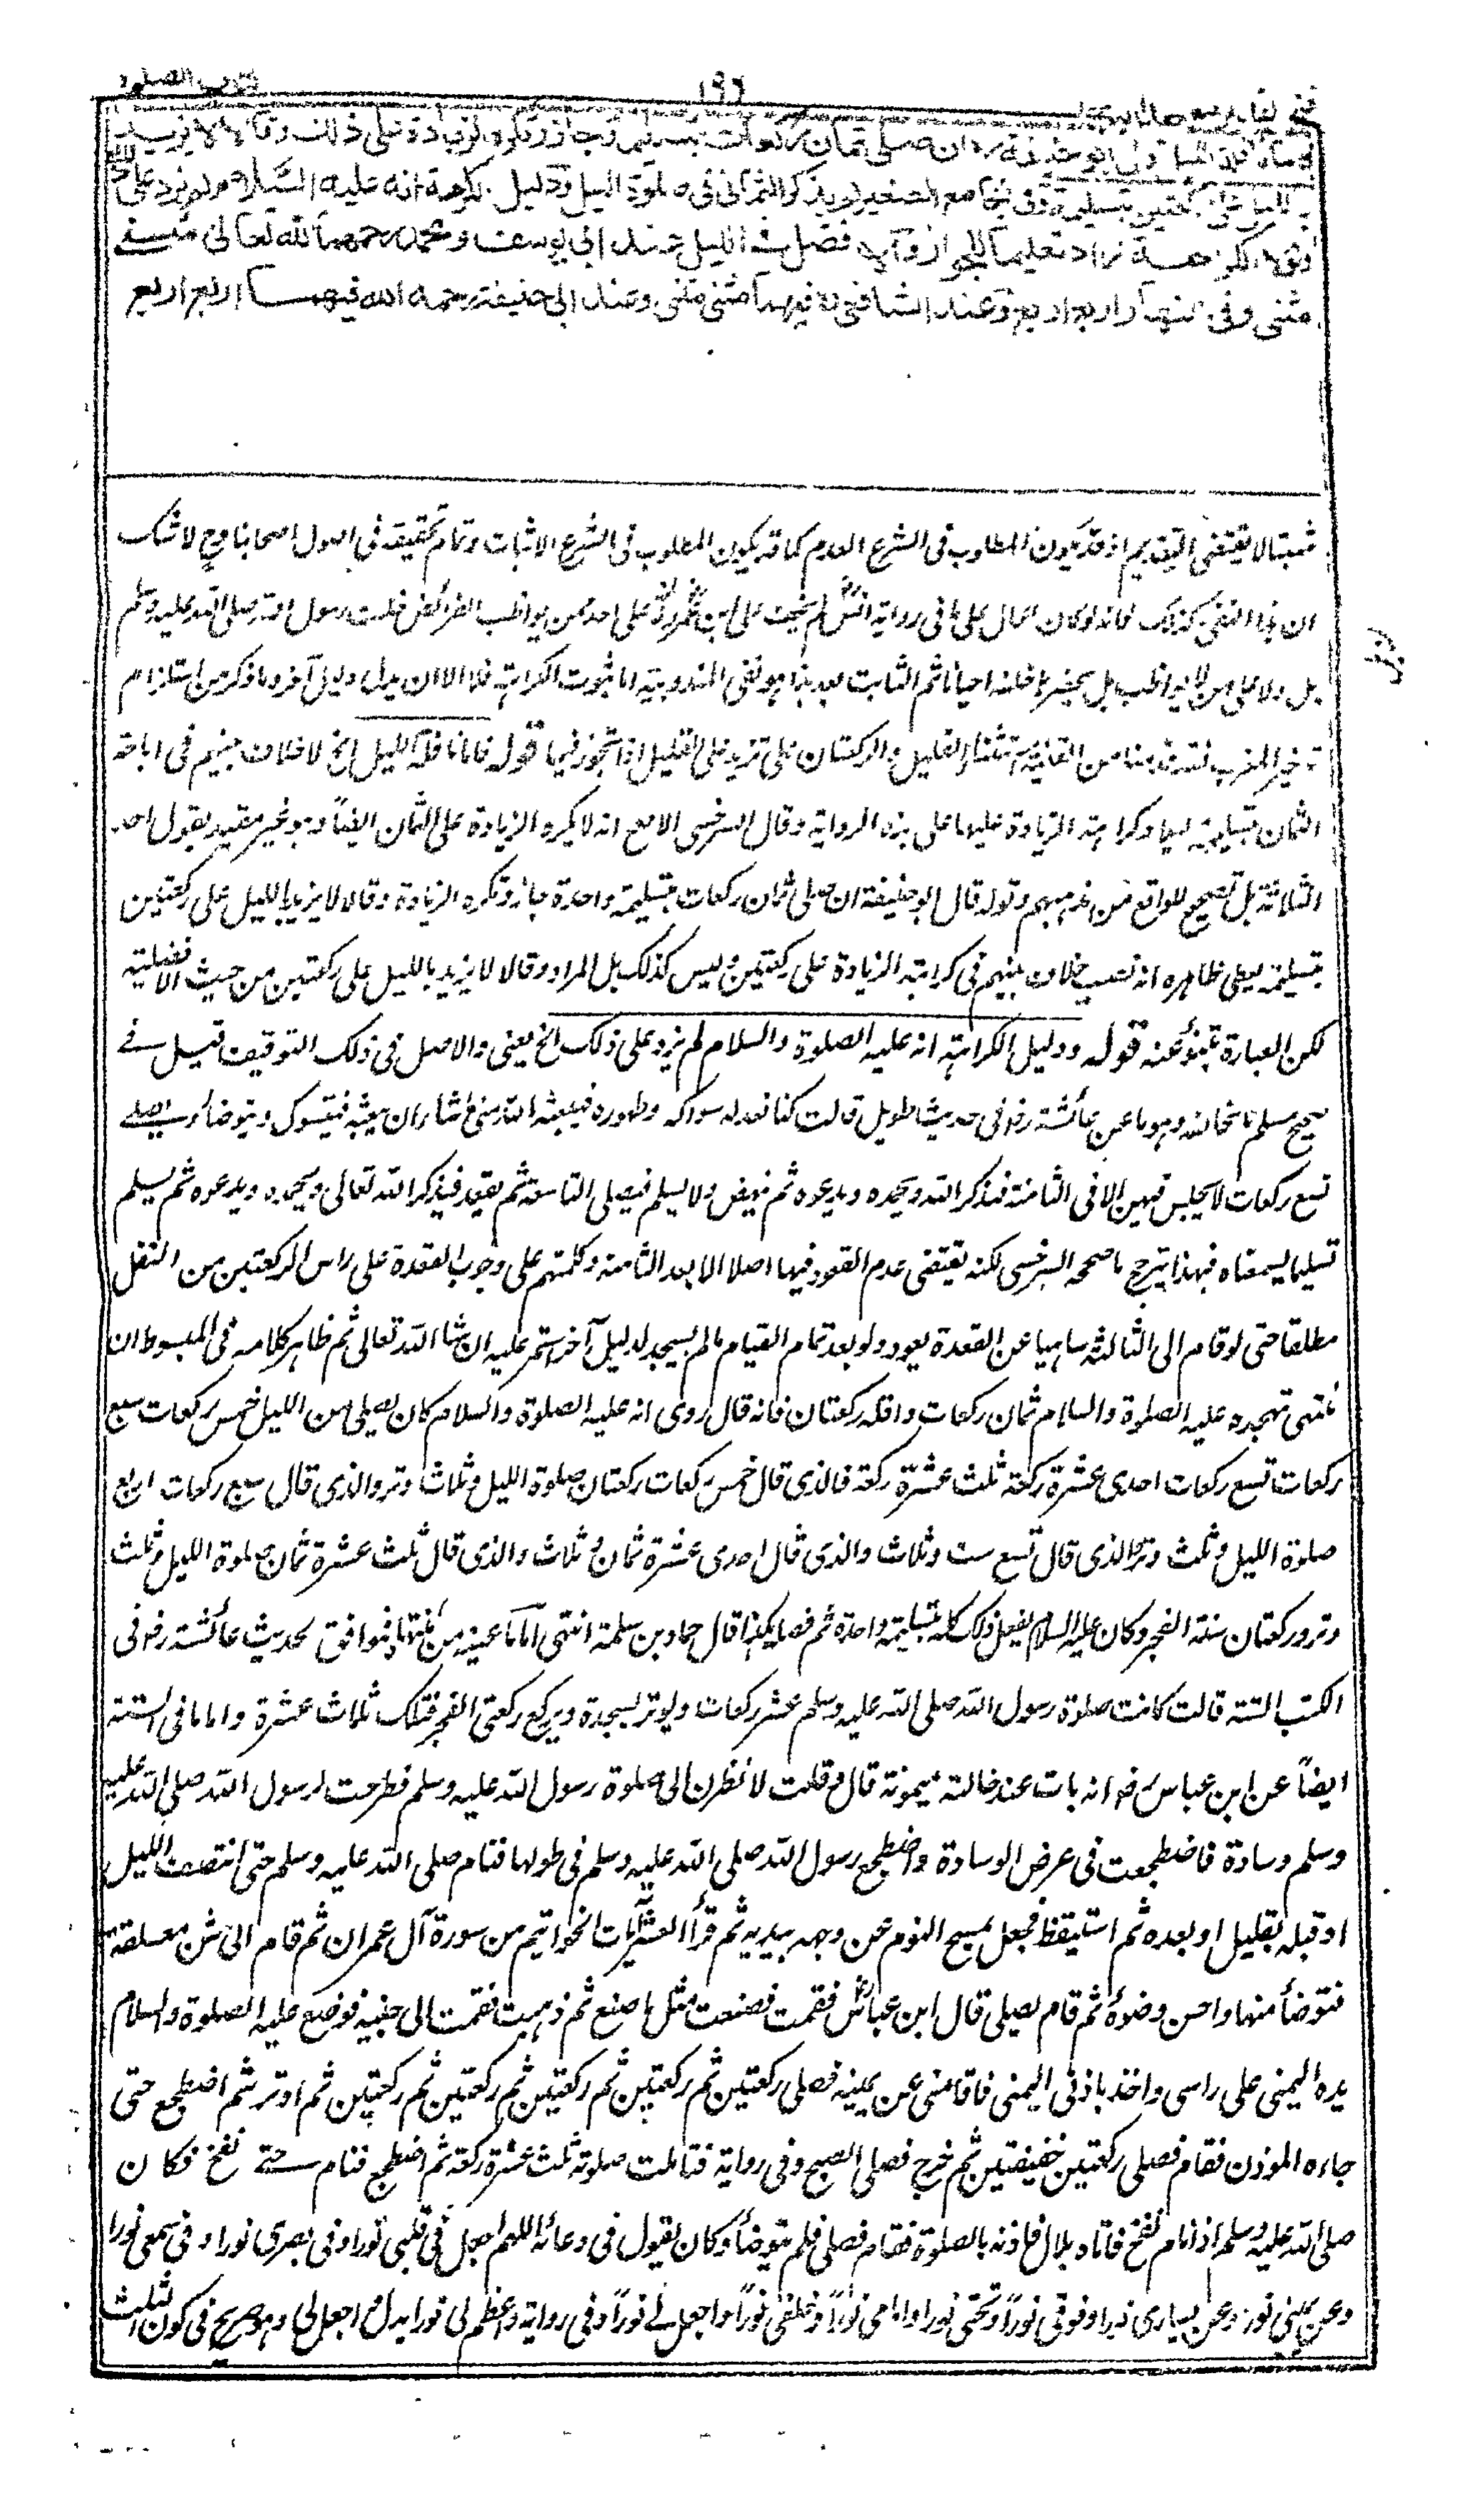 ١٩٦
فتح القدير مع الهداية
كتاب الصلوة
نافلة الليل قال ابو حنيفة ره ان صلى ثمان ركعات بتسليمة جاز وتكره الزيادة على ذلك وقالا لا يزيد
بالليل على ركعتين بتسليمة وفي الجامع الصغير لم يذكر الثماني في صلوة الليل ودليل الكراهة انه عليه السلام لم يزد على ذلك
ولولا الكراهة لزاد تعليما للجواز والافضل في الليل عند ابي يوسف ومحمد رحمهما الله تعالى مثنى
مثنى وفي النهار اربع اربع وعند الشافعي ره فيهما مثنى مثنى وعند ابي حنيفة رحمه الله فيهما اربع اربع
مثبتا لا يقتضى التقديم اذ قد يكون المطلوب فى الشرع العدم كما قد يكون المطلوب فى الشرع الاثبات وتمام تحقيقه فى اصول اصحابنا وح لا شك
ان هذا النفى كذلك فانه لو كان الحال على ما فى رواية انس لم يخف على ابن عمر بل ولا على احد ممن يواظب الفرائض خلف رسول الله صلى الله عليه وسلم
بل ولا على من لا يواظب بل يحضر خلفه احيانا ثم الثابت بعد هذا هو نفى المندوبية اما ثبوت الكراهة فلا الا ان يدل دليل آخر وما ذكر من استلزام
تاخير المغرب فقد قدمنا من القنية استثناء القليل والركعتان لا تزيد على القليل اذا تجوز فيهما قوله فاما نافلة الليل الخ لا خلاف بينهم فى اباحة
الثمان بتسليمة ليلا وكراهة الزيادة عليها على هذه الرواية وقال السرخسى الاصح انه لا يكره الزيادة على الثمان ايضاً وهو غير مقيد بقول احد
الثلاثة بل تصحيح للواقع من مذهبهم وقوله قال ابو حنيفة ان صلى ثمان ركعات بتسليمة واحدة جاز وتكره الزيادة وقالا لا يزيد بالليل على ركعتين
بتسليمة يعطى ظاهره انه نصب خلاف بينهم فى كراهة الزيادة على ركعتين وليس كذلك بل المراد وقالا لا يزيد بالليل على ركعتين من حيث الافضلية
لكن العبارة تنبؤ عنه قوله ودليل الكراهة انه عليه الصلوة والسلام لم يزد على ذلك الخ يعنى والاصل فى ذلك التوقيف قيل فى
صحيح مسلم ما يخالفه وهو ما عن عائشة رض فى حديث طويل قالت كنا نعد له سواكه وطهوره فيبعثه الله متى ما شاء ان يبعثه فيتسوك ويتوضأ ويصلى
تسع ركعات لا يجلس فيهن الا فى الثامنة فيذكر الله ويحمده ويدعوه ثم ينهض ولا يسلم فيصلى التاسعة ثم يقعد فيذكر الله تعالى ويحمده ويدعوه ثم يسلم
تسليما يسمعناه فبهذا يترجح ما صححه السرخسى لكنه يقتضى عدم القعود فيها اصلا الا بعد الثامنة وكلمتهم على وجوب القعدة على راس الركعتين من النفل
مطلقا حتى لو قام الى الثالثة ساهيا عن القعدة يعود ولو بعد تمام القيام ما لم يسجد لدليل آخر ستمر عليه ان شا الله تعالى ثم ظاهر كلامه فى المبسوط ان
منتهى تهجده عليه الصلوة والسلام ثمان ركعات واقله ركعتان فانه قال روى انه عليه الصلوة والسلام كان يصلى من الليل خمس ركعات سبع
ركعات تسع ركعات احدى عشرة ركعة ثلث عشرة ركعة فالذى قال خمس ركعات ركعتان صلوة الليل وثلاث وتر والذى قال سبع ركعات اربع
صلوة الليل وثلث وتر والذى قال تسع ست وثلاث والذى قال احدى عشرة ثمان وثلاث والذى قال ثلث عشرة ثمان صلوة الليل وثلث
وتر وركعتان سنة الفجر وكان عليه السلام يفعل ذلك كله بتسليمة واحدة ثم فصله هكذا قال حماد بن سلمة انتهى اما ما عينه من منتهاه فموافق لحديث عائشة رض فى
الكتب الستة قالت كانت صلوة رسول الله صلى الله عليه وسلم عشر ركعات ويوتر بسجدة ويركع ركعتى الفجر فتلك ثلاث عشرة واما ما فى الستة
ايضاً عن ابن عباس رض انه بات عند خالته ميمونة قال فقلت لانظرن الى صلوة رسول الله عليه وسلم فطرحت لرسول الله صلى الله عليه
وسلم وسادة فاضطجعت فى عرض الوسادة واضطجع رسول الله صلى الله عليه وسلم فى طولها فنام صلى الله عليه وسلم حتى انتصف الليل
او قبله بقليل او بعده ثم استيقظ فجعل يمسح النوم عن وجهه بيديه ثم قرأ العشر آيات الخواتيم من سورة آل عمران ثم قام الى شن معلقة
فتوضأ منها واحسن وضوءه ثم قام يصلى قال ابن عباس فقمت فصنعت مثل ما صنع ثم ذهبت فقمت الى جنبيه فوضع عليه الصلوة والسلام
يده اليمنى على راسى واخذ باذنى اليمنى فاقامنى عن يمينه فصلى ركعتين ثم ركعتين ثم ركعتين ثم ركعتين ثم ركعتين ثم اوتر ثم اضطجع حتى
جاءه المؤذن فقام فصلى ركعتين خفيفتين ثم خرج فصلى الصبح وفى رواية فتكاملت صلوته ثلث عشرة ركعة ثم اضطجع فنام حتى نفخ فكان
صلى الله عليه وسلم اذا نام نفخ فاتاه بلال فاذنه بالصلوة فقام فصلى فلم يتوضأ وكان يقول فى دعائه اللهم اجعل فى قلبى نورا وفى بصرى نورا وفى سمعى نورا
وعن يمينى نورا وعن يسارى نورا وفوقى نوراً وتحتى نورا وامامى نوراً وخلفى نوراً واجعل لى نوراً وفى رواية واعظم لى نورا بدل اجعل لى وهو صريح فى كون الثلث